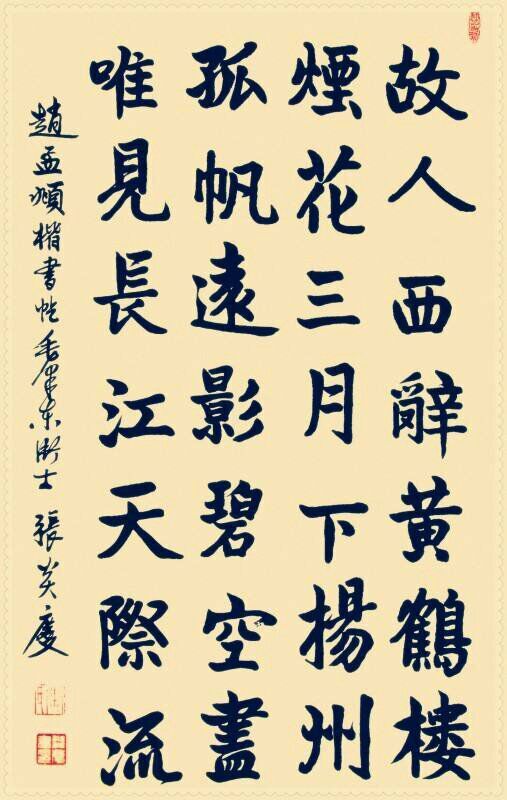 故人西辭黄鶴樓
煙花三月下揚州
孤帆遠影碧空盡
唯見長江天際流
趙孟頫楷書 毛澤東衛士 張炎慶